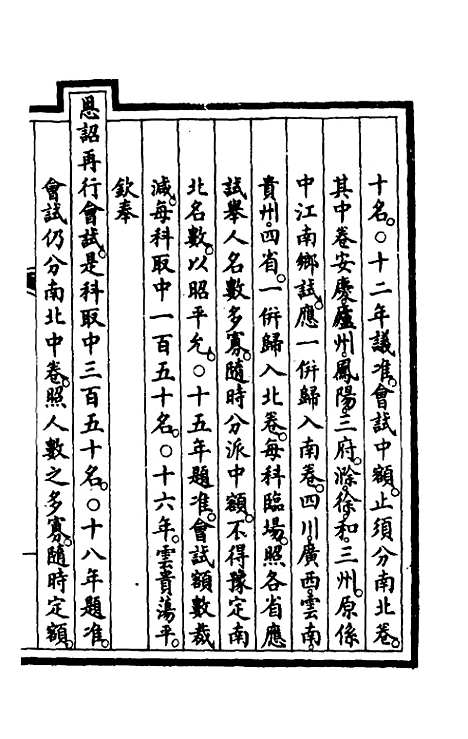 十名。○十二年議准。會試中額。止須分南北卷。
其中卷安慶。廬州。鳳陽。三府。滁。徐。和。三州。原係
中江南鄉試。應一併歸入南卷。四川。廣西。雲南。
貴州。四省。一併歸入北卷。每科臨場。照各省應
試舉人名數多寡。隨時分派中額。不得豫定南
北名數。以昭平允。○十五年題准。會試額數裁
減。每科取中一百五十名。○十六年。雲貴蕩平。
欽奉
恩詔再行會試。是科取中三百五十名。○十八年題准。
會試仍分南北中卷。照人數之多寡。隨時定額。